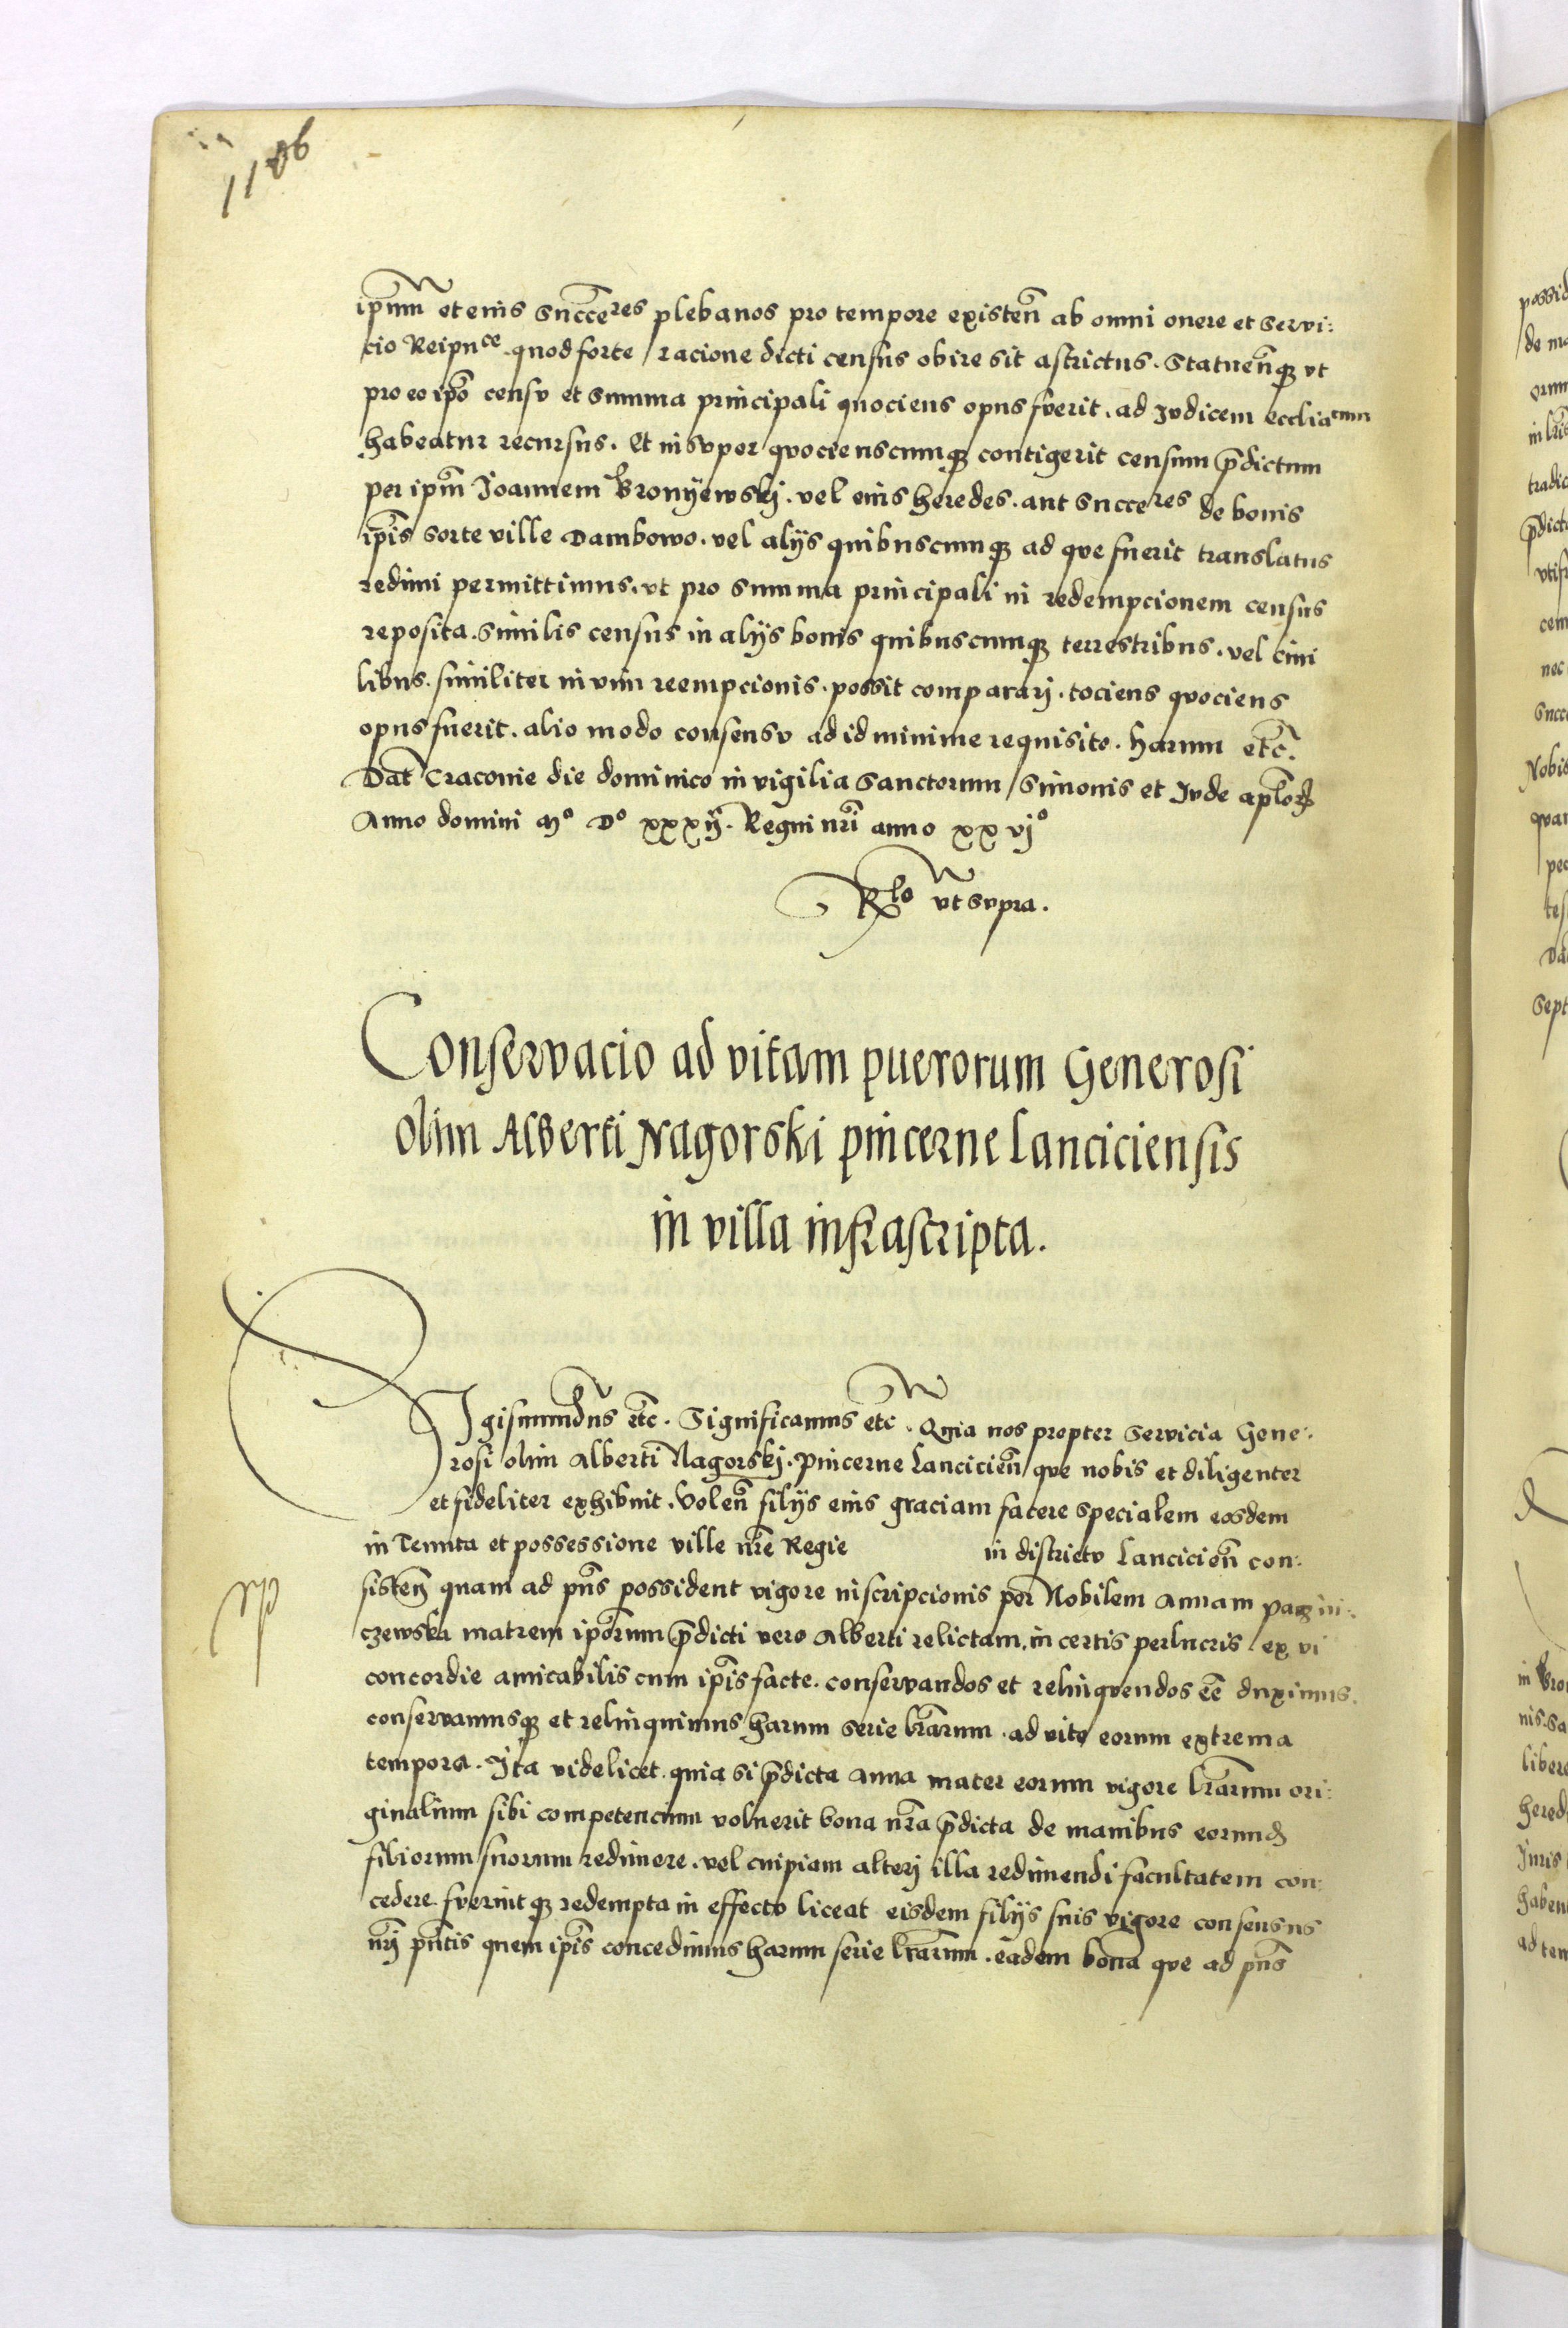 1106
ip̃um et eius Succ̃eres plebanos pro tempore existeñ ab omni onere et Servi:
cio Reipuce. quod forte racione dicti census obire sit astrictus. Statueñq; vt
pro eo ip̃o censv et Summa principali quociens opus fverit. ad Jvdicem eccliacum
habeatur recursus. Et insvper qvocienscumq; contigerit censum p̃dictum
per ip̃m Joannem Bronÿewskj. vel eius heredes. aut Succeres de bonis
ip̃is Sorte ville Dambowo. vel alÿs quibuscumq; ad que fuerit translatus
redimi permittimus. vt pro Summa principali in redempcionem census
reposita. Similis census in alÿs bonis quibuscumq; terrestribus. vel civi
libus. similiter in vim reempcionis. possit comparari. tociens qvociens
opus fuerit. alio modo consensv ad id minime requisito. harum etc̃.
Dat̃ Craconie die dominico in vigilia Sanctorum Simonis et Jvde aplor̃
Anno domini Mº Dº xxxij. Regni nr̃i anno xxvjº
Rlo vt svpra.
Conservacio ad vitam puerorum Generosi
olim Alberti Nagorski pincerne Lanciciensis
in villa infrascripta.
SIgismundus etc̃. Significamus etc̃. Quia nos propter Servicia Gene:
rosi olim Alberti Nagorskj. Pincerne Lancicieñ que nobis et diligenter
et fideliter exhibuit. Voleñ filÿs eius graciam facere specialem eosdem
in Tenuta et possessione ville nr̃e Regie in districtv Lancicieñ con:
sisteñ quam ad pñs possident vigore inscripcionis per Nobilem Annam Parzni:
czewska matrem ip̃orum p̃dicti vero Alberti relictam. in certis perlucris ex vi
concordie amicabilis cum ip̃is facte. conservandos et relinqvendos eẽ duximus.
conservamusq; et relinquimus harum serie lr̃arum. ad vite eorum extrema
tempora. Ita videlicet. quia si p̃dicta Anna mater eorum vigore lr̃arum ori:
ginalium sibi competencium voluerit bona nr̃a p̃dicta de manibus eorund̃
filiorum suorum redimere. vel cuipiam alterj illa redimendi facultatem con:
cedere. fverintq; redempta in effectv liceat eisdem filÿs suis vigore consensus
nr̃j pñtis quem ip̃is concedimus harum serie lr̃arum. eadem bona que ad pñs